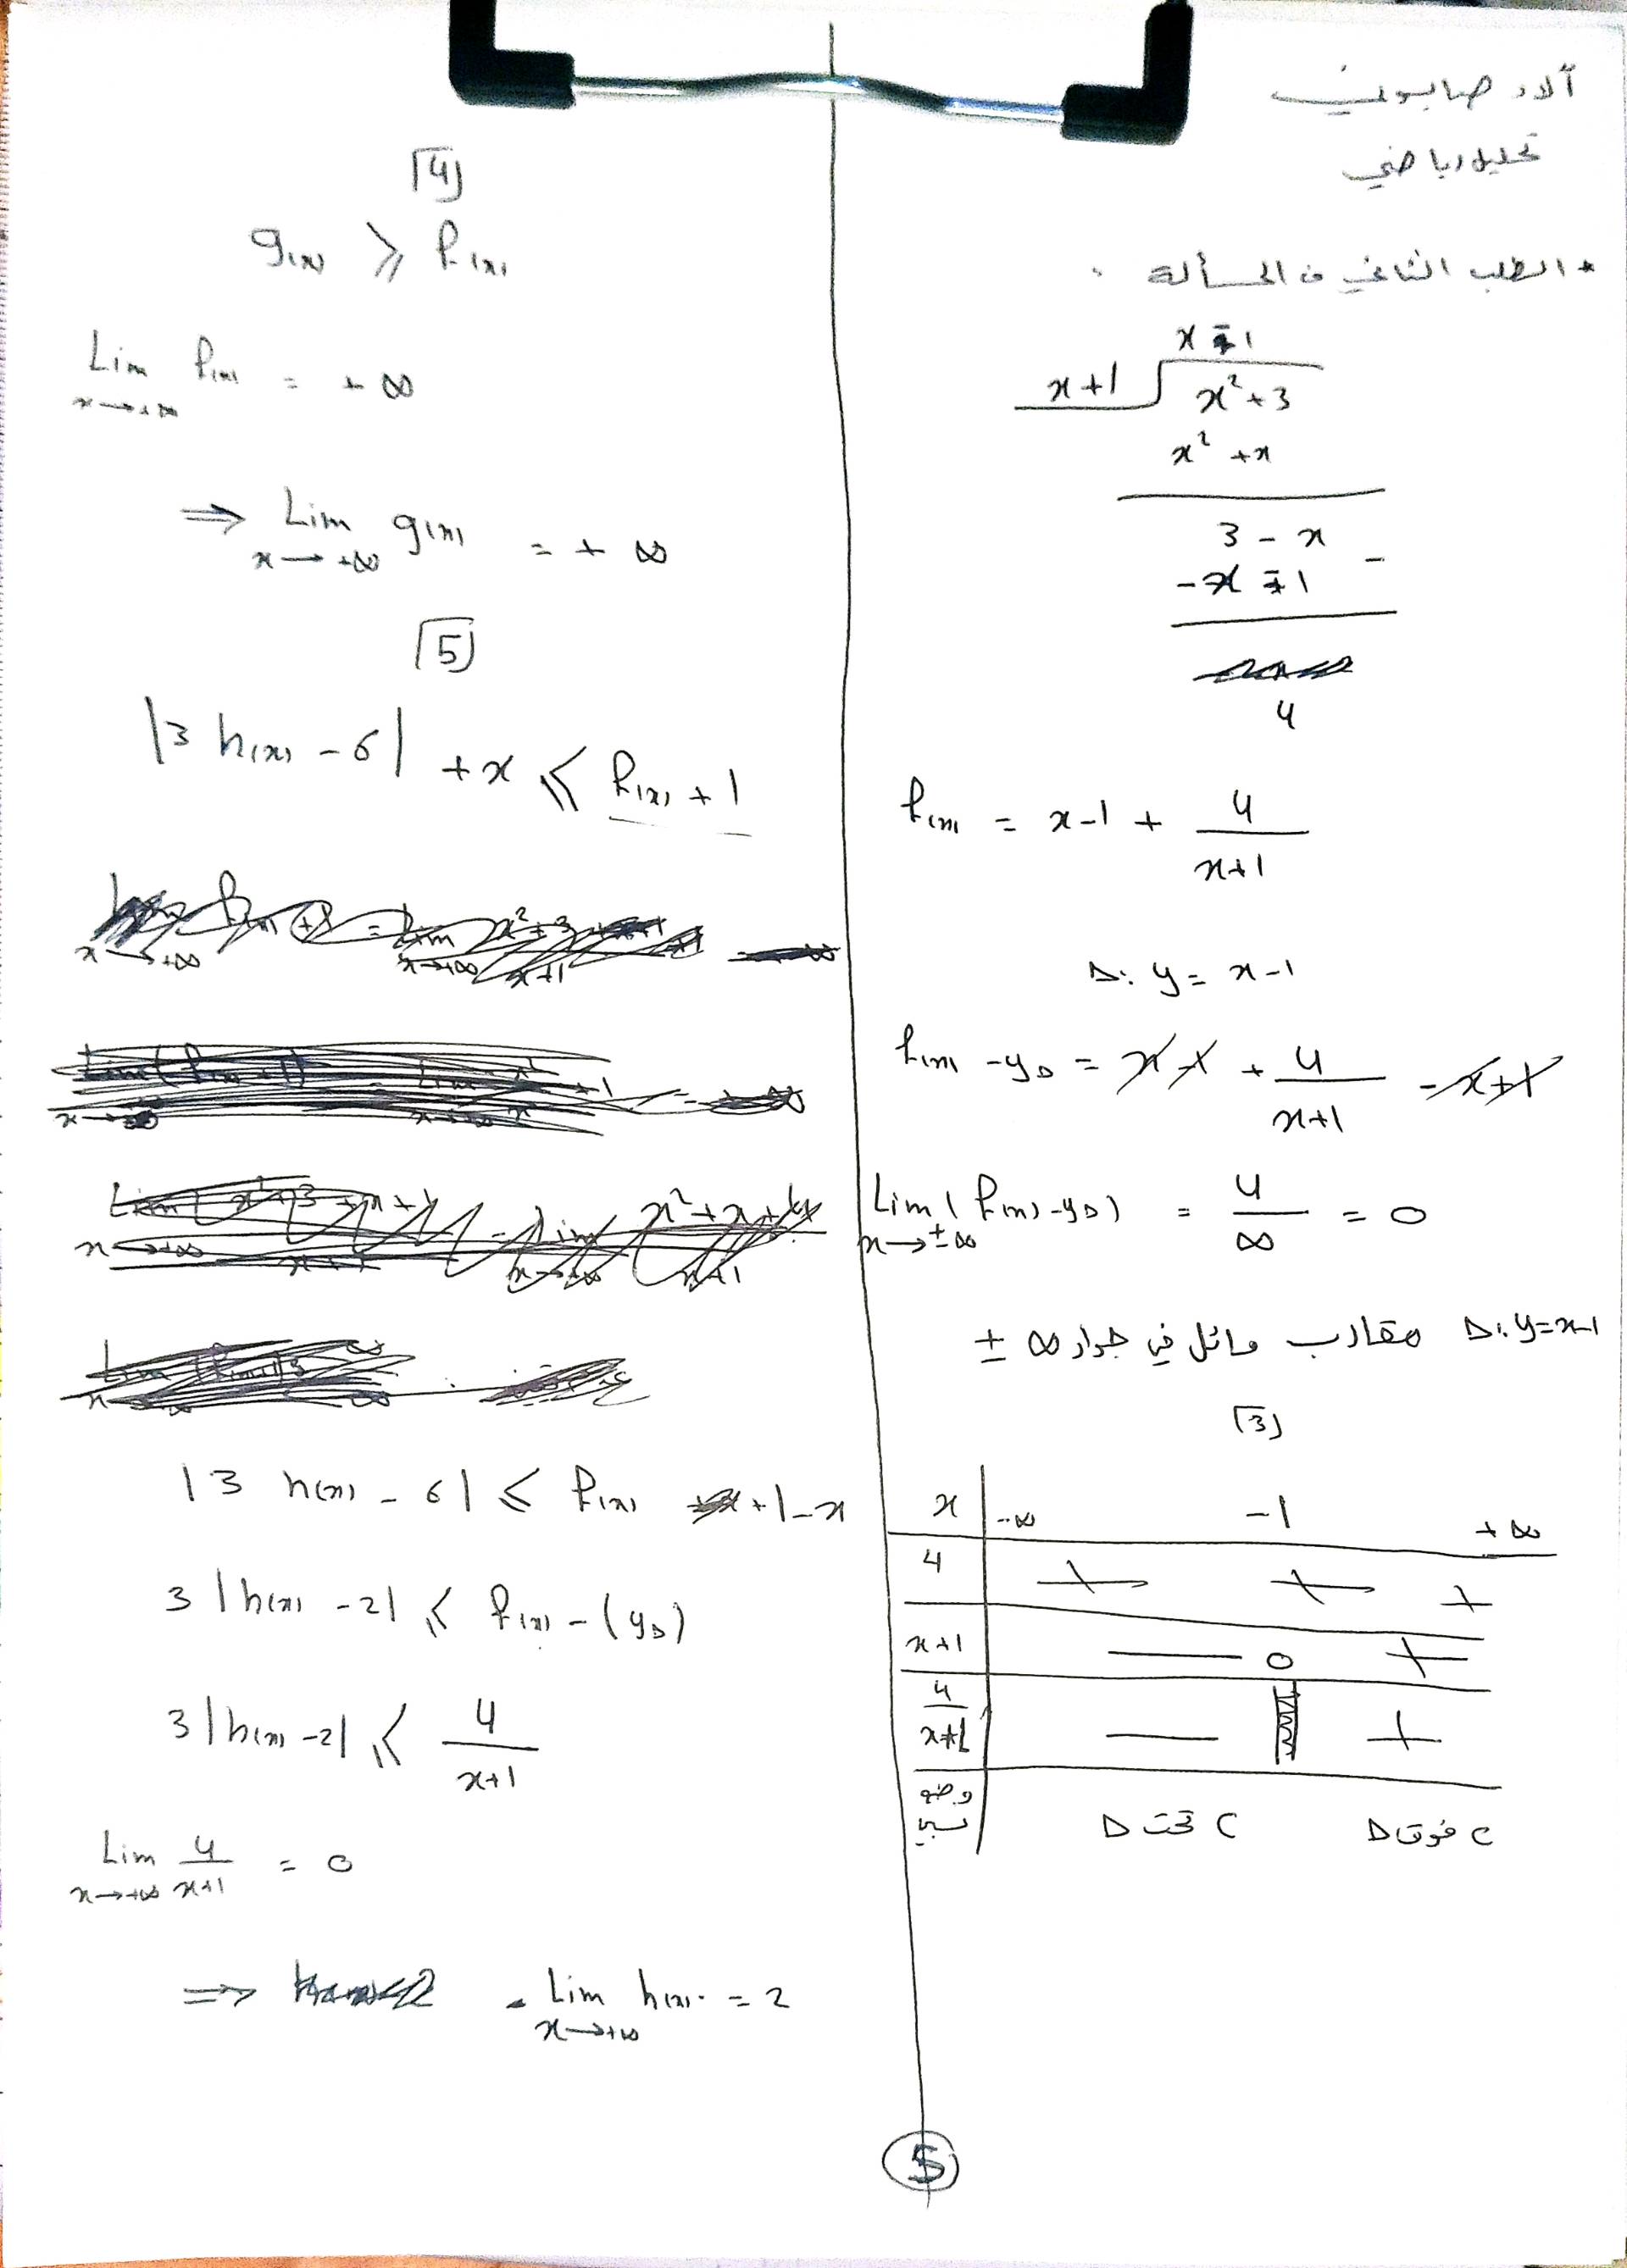 آلاء صابوني
تحليل رياضي
* الطلب الثاني من المسألة :
x - 1
x+1 x²+3
x² + x
3 - x
- x - 1 -
4
f(x) = x-1 + 4/(x+1)
Δ: y = x-1
f(x) - yΔ = x - 1 + 4/(x+1) - x + 1
Lim (f(x) - yΔ) = 4/∞ = 0
x→±∞
Δ: y=x-1 مقارب مائل في جوار ∞ ±
[3]
x -∞ -1 +∞
4 + + +
x+1 - 0 +
4/(x+1) - || +
وضع نسبي C تحت Δ C فوق Δ
[4]
g(x) ⩾ f(x)
Lim f(x) = +∞
x→+∞
⇒ Lim g(x) = +∞
x→+∞
[5]
|3 h(x) - 6| + x ⩽ f(x) + 1
|3 h(x) - 6| ⩽ f(x) + 1 - x
3 |h(x) - 2| ⩽ f(x) - (yΔ)
3 |h(x) - 2| ⩽ 4/(x+1)
Lim 4/(x+1) = 0
x→+∞
⇒ Lim h(x) = 2
x→+∞
5